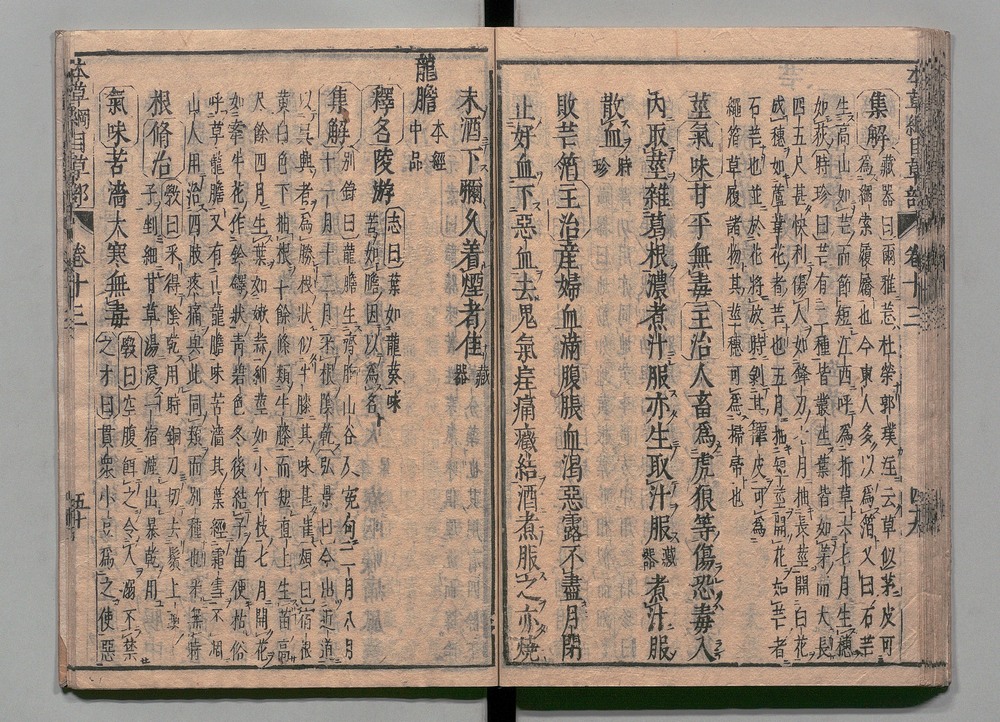 本草綱目草部 卷十三 四十九
集解 藏器曰爾雅莣杜榮郭璞注云草似茅皮可
為繩索履屩也今東人多以為箔又曰石芒
生高山如芒而節短江西呼為折草六七月生穗
如荻時珍曰芒有二種皆叢生葉皆如茅而大長
四五尺甚快利傷人如鋒刃七月抽長莖開白花
成穗如蘆葦花者芒也五月抽短莖開花如芒者
石芒也並於花將放時剝其籜皮可為
繩箔草履諸物其莖穗可為掃帚也
莖氣味甘平無毒主治人畜為虎狼等傷恐毒入
內取莖雜葛根濃煮汁服亦生取汁服藏器煮汁服
散血時珍
敗芒箔主治產婦血滿腹脹血渴惡露不盡月閉
止好血下惡血去鬼氣疰痛癥結酒煮服之亦燒
末酒下彌久着煙者佳藏器
龍膽本經中品
釋名陵游 志曰葉如龍葵味
苦如膽因以為名
集解 別錄曰龍膽生齊朐山谷及冤句二月八月
十一月十二月采根陰乾弘景曰今出近道
以吳興者為勝根狀似牛膝其味甚苦頌曰宿根
黃白色下抽根十餘條類牛膝而短直上生苗高
尺餘四月生葉如嫩蒜細莖如小竹枝七月開花
如牽牛花作鈴鐸狀青碧色冬後結子苗便枯俗
呼草龍膽又有山龍膽味苦濇其葉經霜雪不凋
山人用治四肢疼痛與此同類而別種也采無時
根脩治 斅曰采得陰乾用時銅刀切去鬚上
子剉細甘草湯浸一宿漉出暴乾用
氣味苦濇大寒無毒 斅曰空腹餌之令人溺不禁
之才曰貫眾小豆為之使惡
本草綱目草部 卷十三 五十